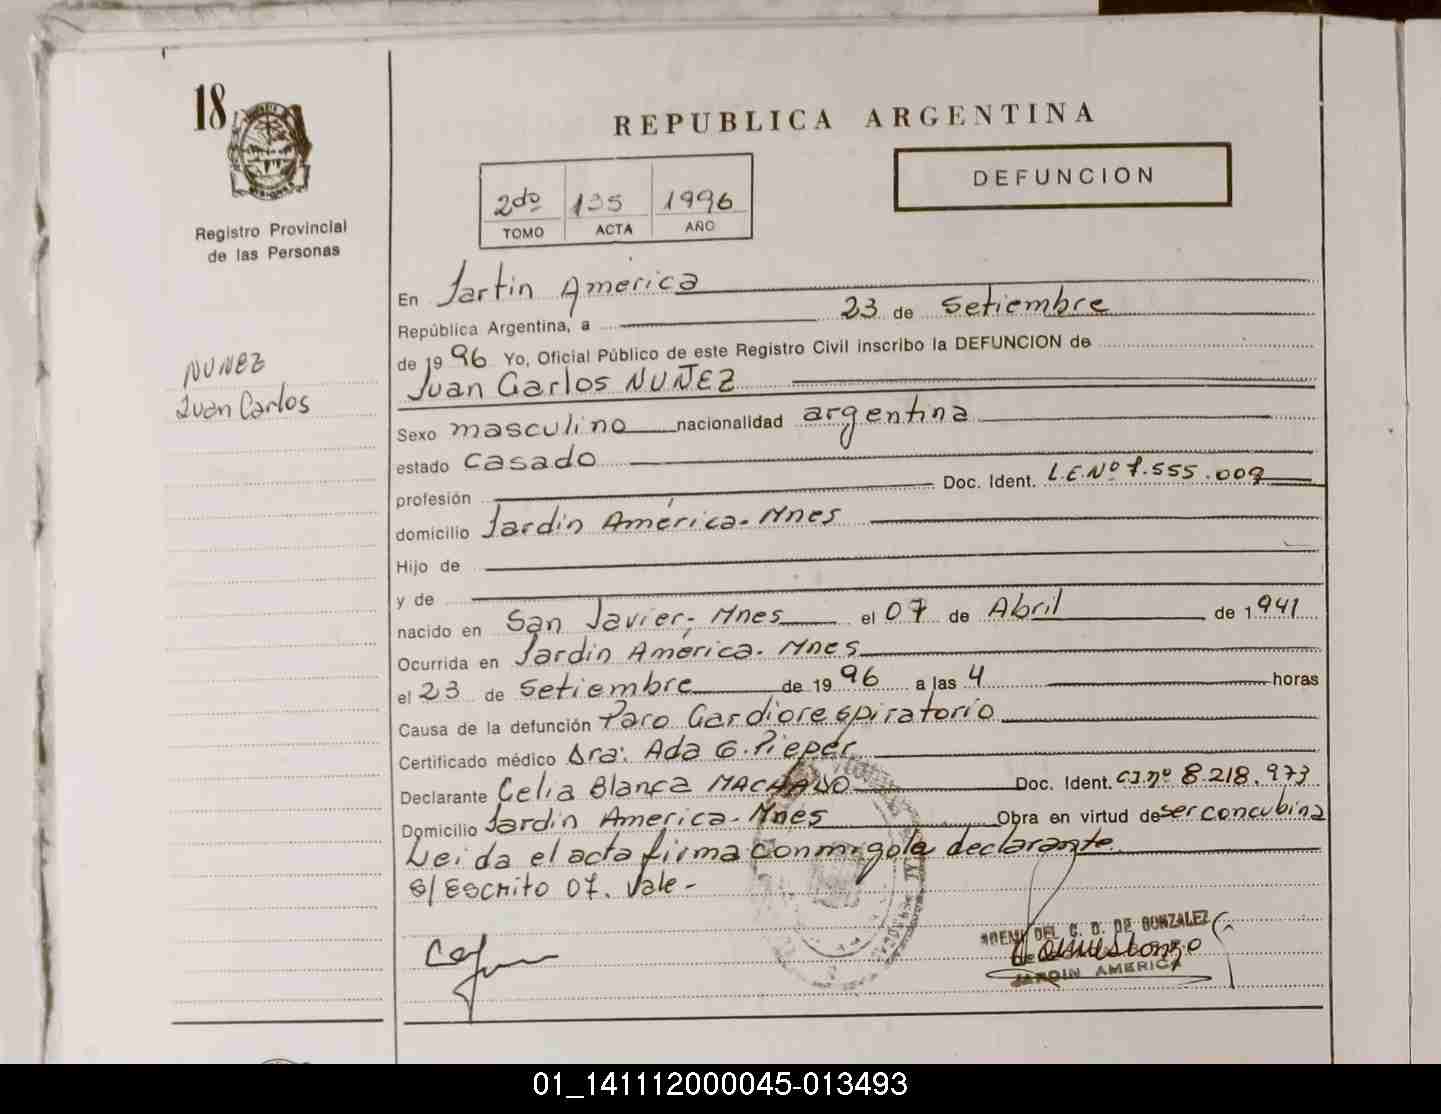 18
REPUBLICA ARGENTINA
DEFUNCION
2do 135 1996
TOMO ACTA AÑO
Registro Provincial
de las Personas
NUÑEZ
Juan Carlos
En Jartin América
República Argentina, a 23 de Setiembre
de 1996 Yo, Oficial Público de este Registro Civil inscribo la DEFUNCION de
Juan Carlos NUÑEZ
Sexo masculino nacionalidad argentina
estado casado
profesión Doc. Ident. L.E.Nº 7.555.009
domicilio Jardin América-Mnes
Hijo de
y de
nacido en San Javier, Mnes el 07 de Abril de 1941
Ocurrida en Jardin América. Mnes
el 23 de Setiembre de 1996 a las 4 horas
Causa de la defunción Paro Cardiorespiratorio
Certificado médico Dra: Ada G. Pieper
Declarante Celia Blanca MACHADO Doc. Ident. C.I.nº 8.218.973
Domicilio Jardin America-Mnes Obra en virtud de ser concubina
Leida el acta firma conmigo la declarante
S/Escrito 07. Vale-
DEL C. D. DE GONZALEZ
JARDIN AMERICA
01_141112000045-013493